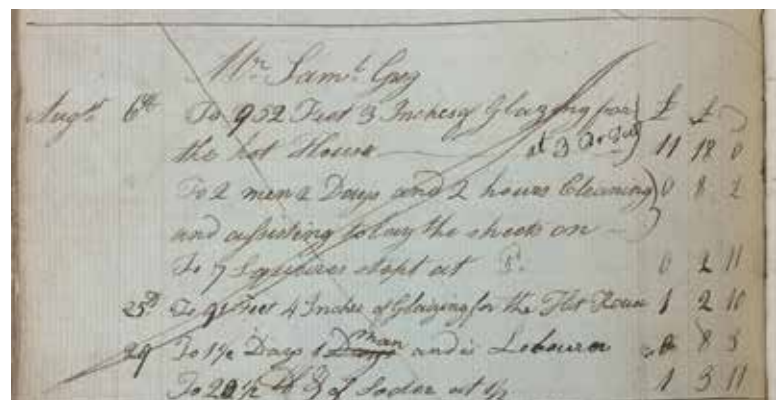 Mr. Saml. Greg
Augst 6th To 952 Feet 3 Inches of Glazing for £
the hot House at 3 Pr Feet 11 18 0
To 2 men 2 Days and 2 hours Cleaning 0 8 2
and assisting to lay the sheets on
To 7 Squares stopt at 0 2 11
25th To 91 Feet 4 Inches of Glazing for the Hot House 1 2 10
29 To 1½ Days 1 Man and a Labourer 0 8 3
To 20½ lb of Soder at 1/2 1 3 11